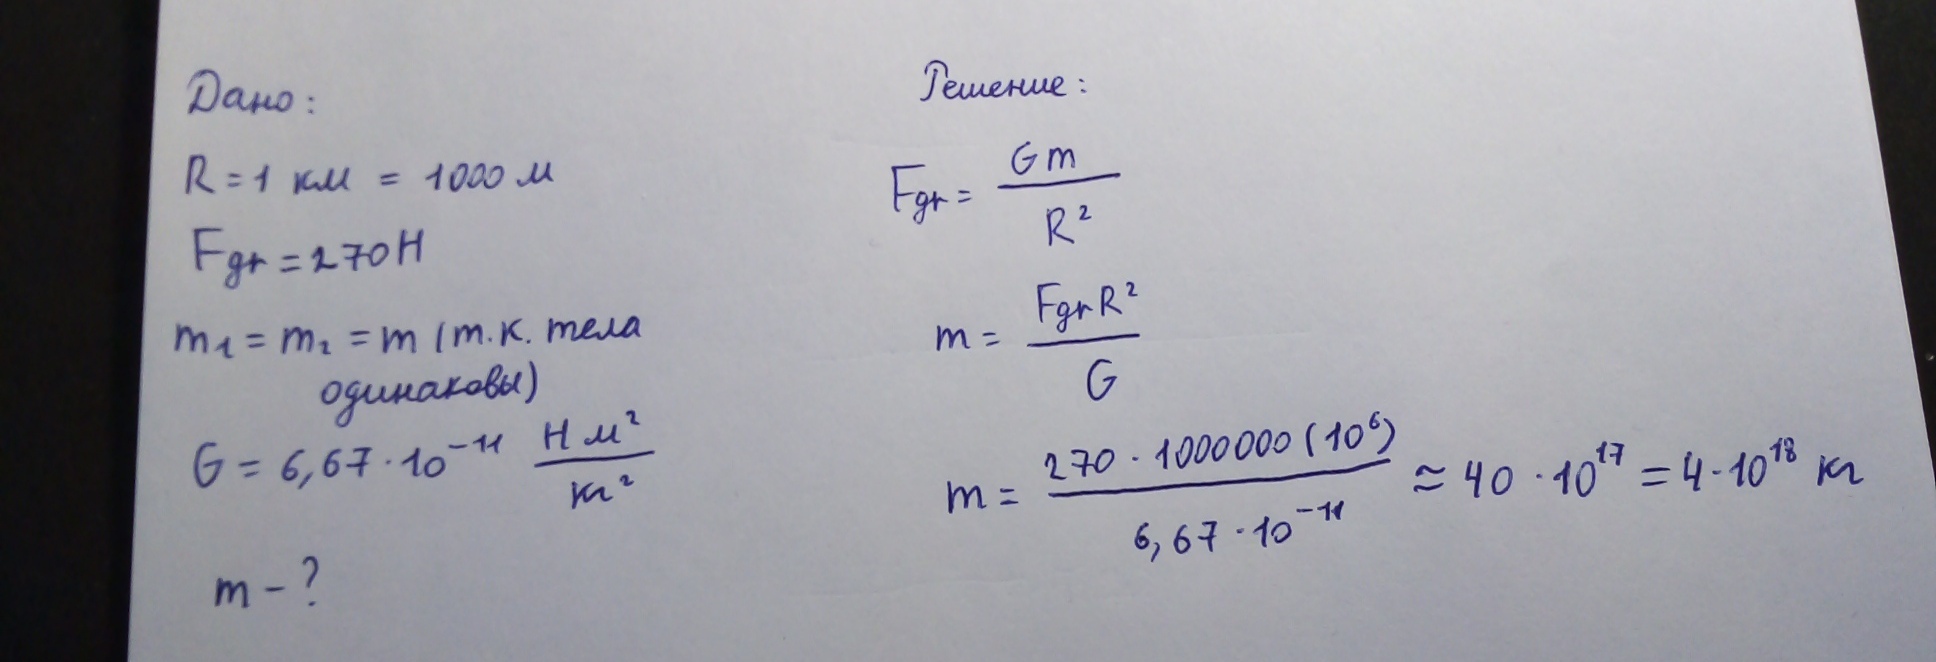 Дано:
R = 1 км = 1000 м
Fgr = 270 Н
m₁ = m₂ = m (т.к. тела
одинаковы)
G = 6,67 · 10⁻¹¹ Н м² / кг²
m - ?
Решение:
Fgr = Gm / R²
m = FgrR² / G
m = 270 · 1000000 (10⁶) / 6,67 · 10⁻¹¹ ≈ 40 · 10¹⁷ = 4 · 10¹⁸ кг